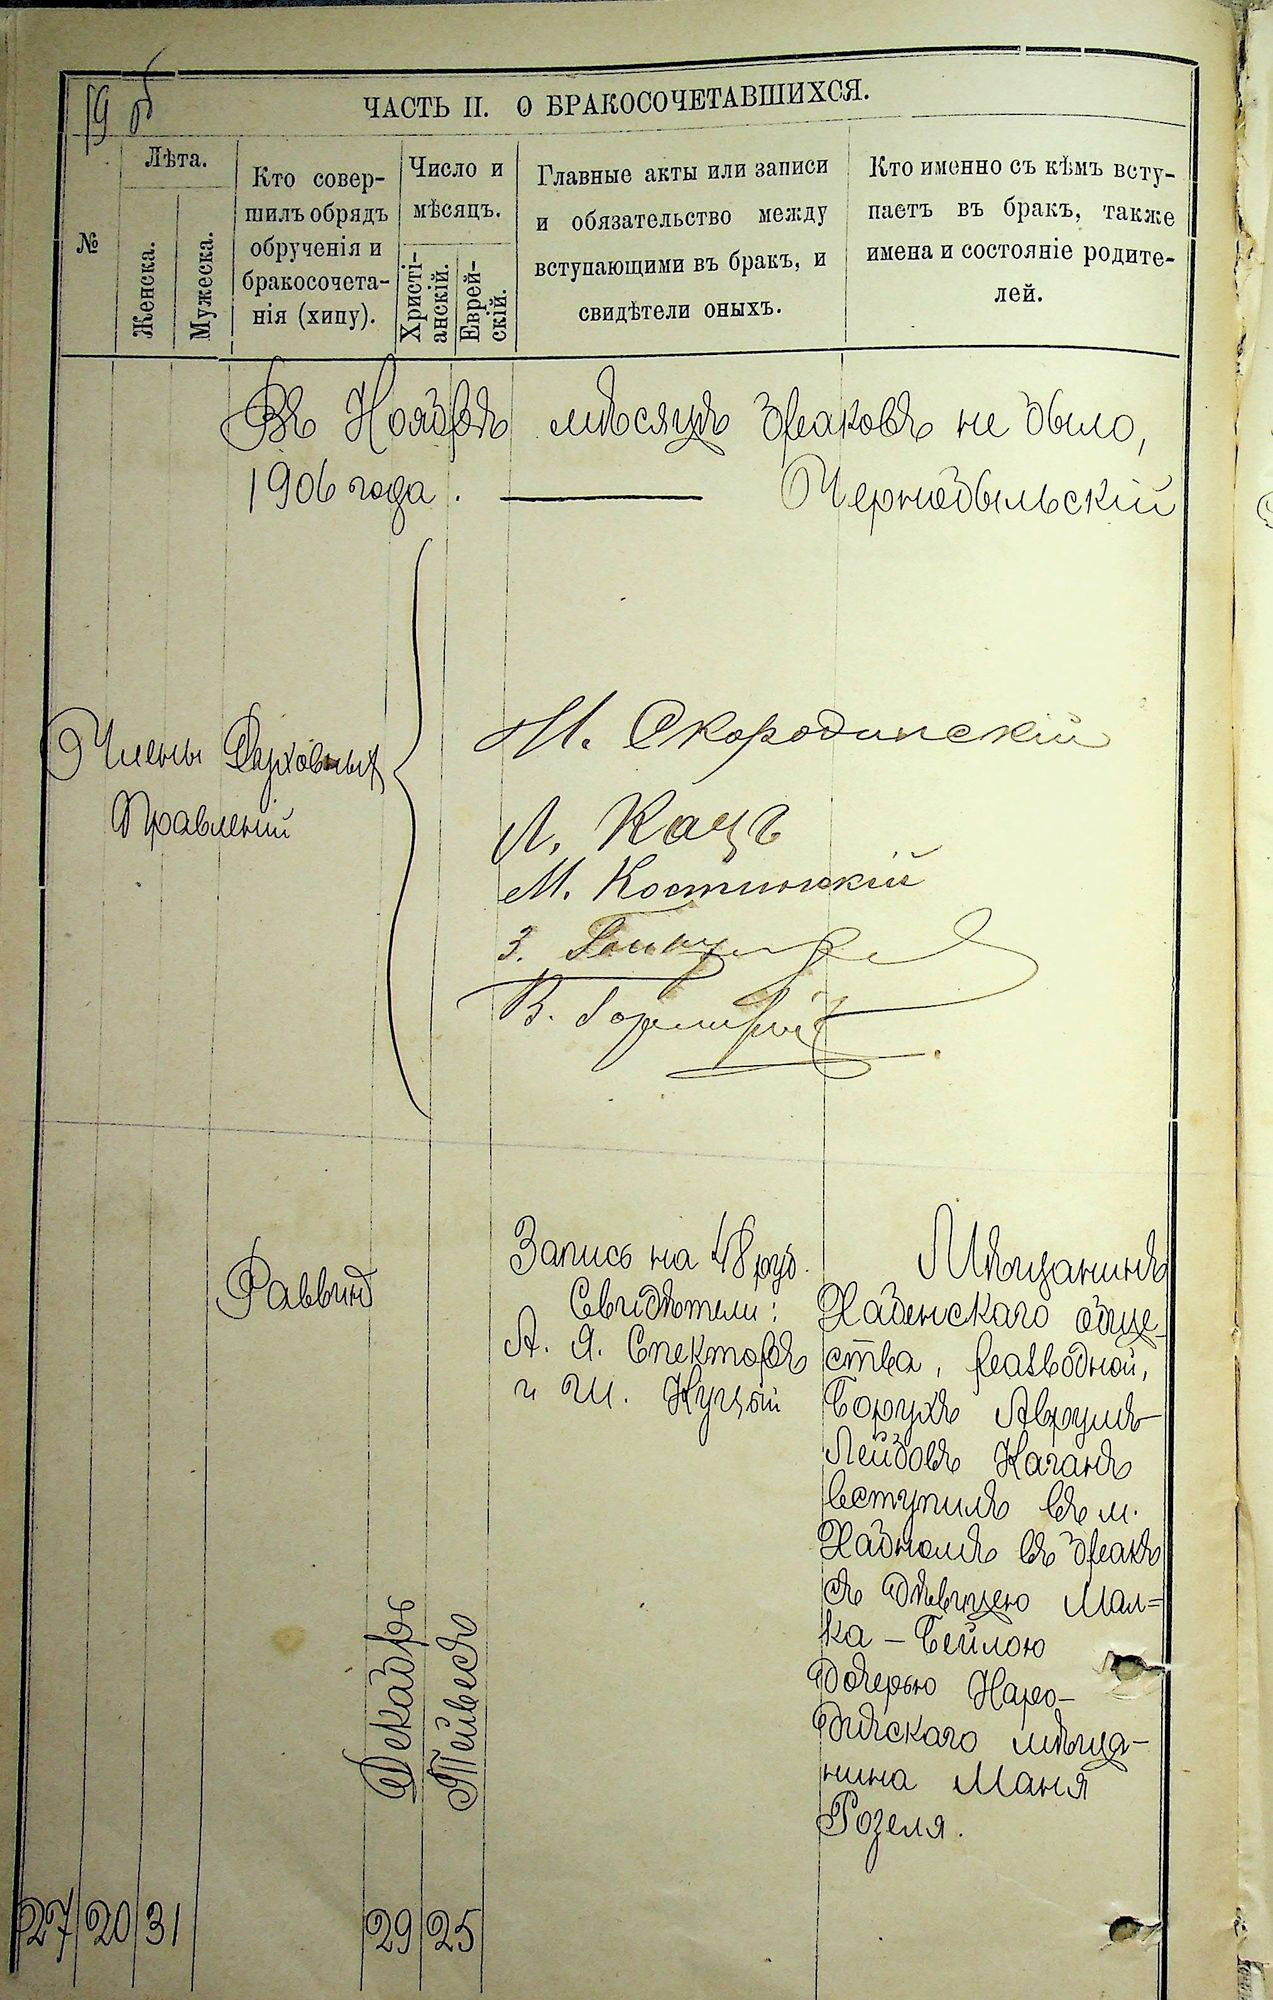 19 об
ЧАСТЬ II. О БРАКОСОЧЕТАВШИХСЯ.
№
Лѣта.
Женска.
Мужеска.
Кто совер-
шилъ обрядъ
обрученія и
бракосочета-
нія (хипу).
Число и
мѣсяцъ.
Христі-
анскій.
Еврей-
скій.
Главные акты или записи
и обязательство между
вступающими въ бракъ, и
свидѣтели оныхъ.
Кто именно съ кѣмъ всту-
паетъ въ бракъ, также
имена и состояніе родите-
лей.
Въ Ноябрѣ мѣсяцѣ браковъ не было,
1906 года. — Чернобыльскій
Члены Духовныхъ
Правленій
Скородинскій
Л. Кацъ
М. Костинскій
З.
В.
27
20
31
Раввинъ
Декабрь
29
Тейвесъ
25
Запись на 48 руб.
Свидѣтели:
А. Я. Спекторъ
и Ш. Куцый
Мѣщанинъ
Хабенскаго обще-
ства, разводной,
Борухъ Аврумъ-
Лейбовъ Каганъ
вступилъ въ м.
Хабномъ въ бракъ
съ дѣвицею Мал=
ка-Бейлою
дочерью Наро-
дичскаго мѣща-
нина Маня
Розеля.